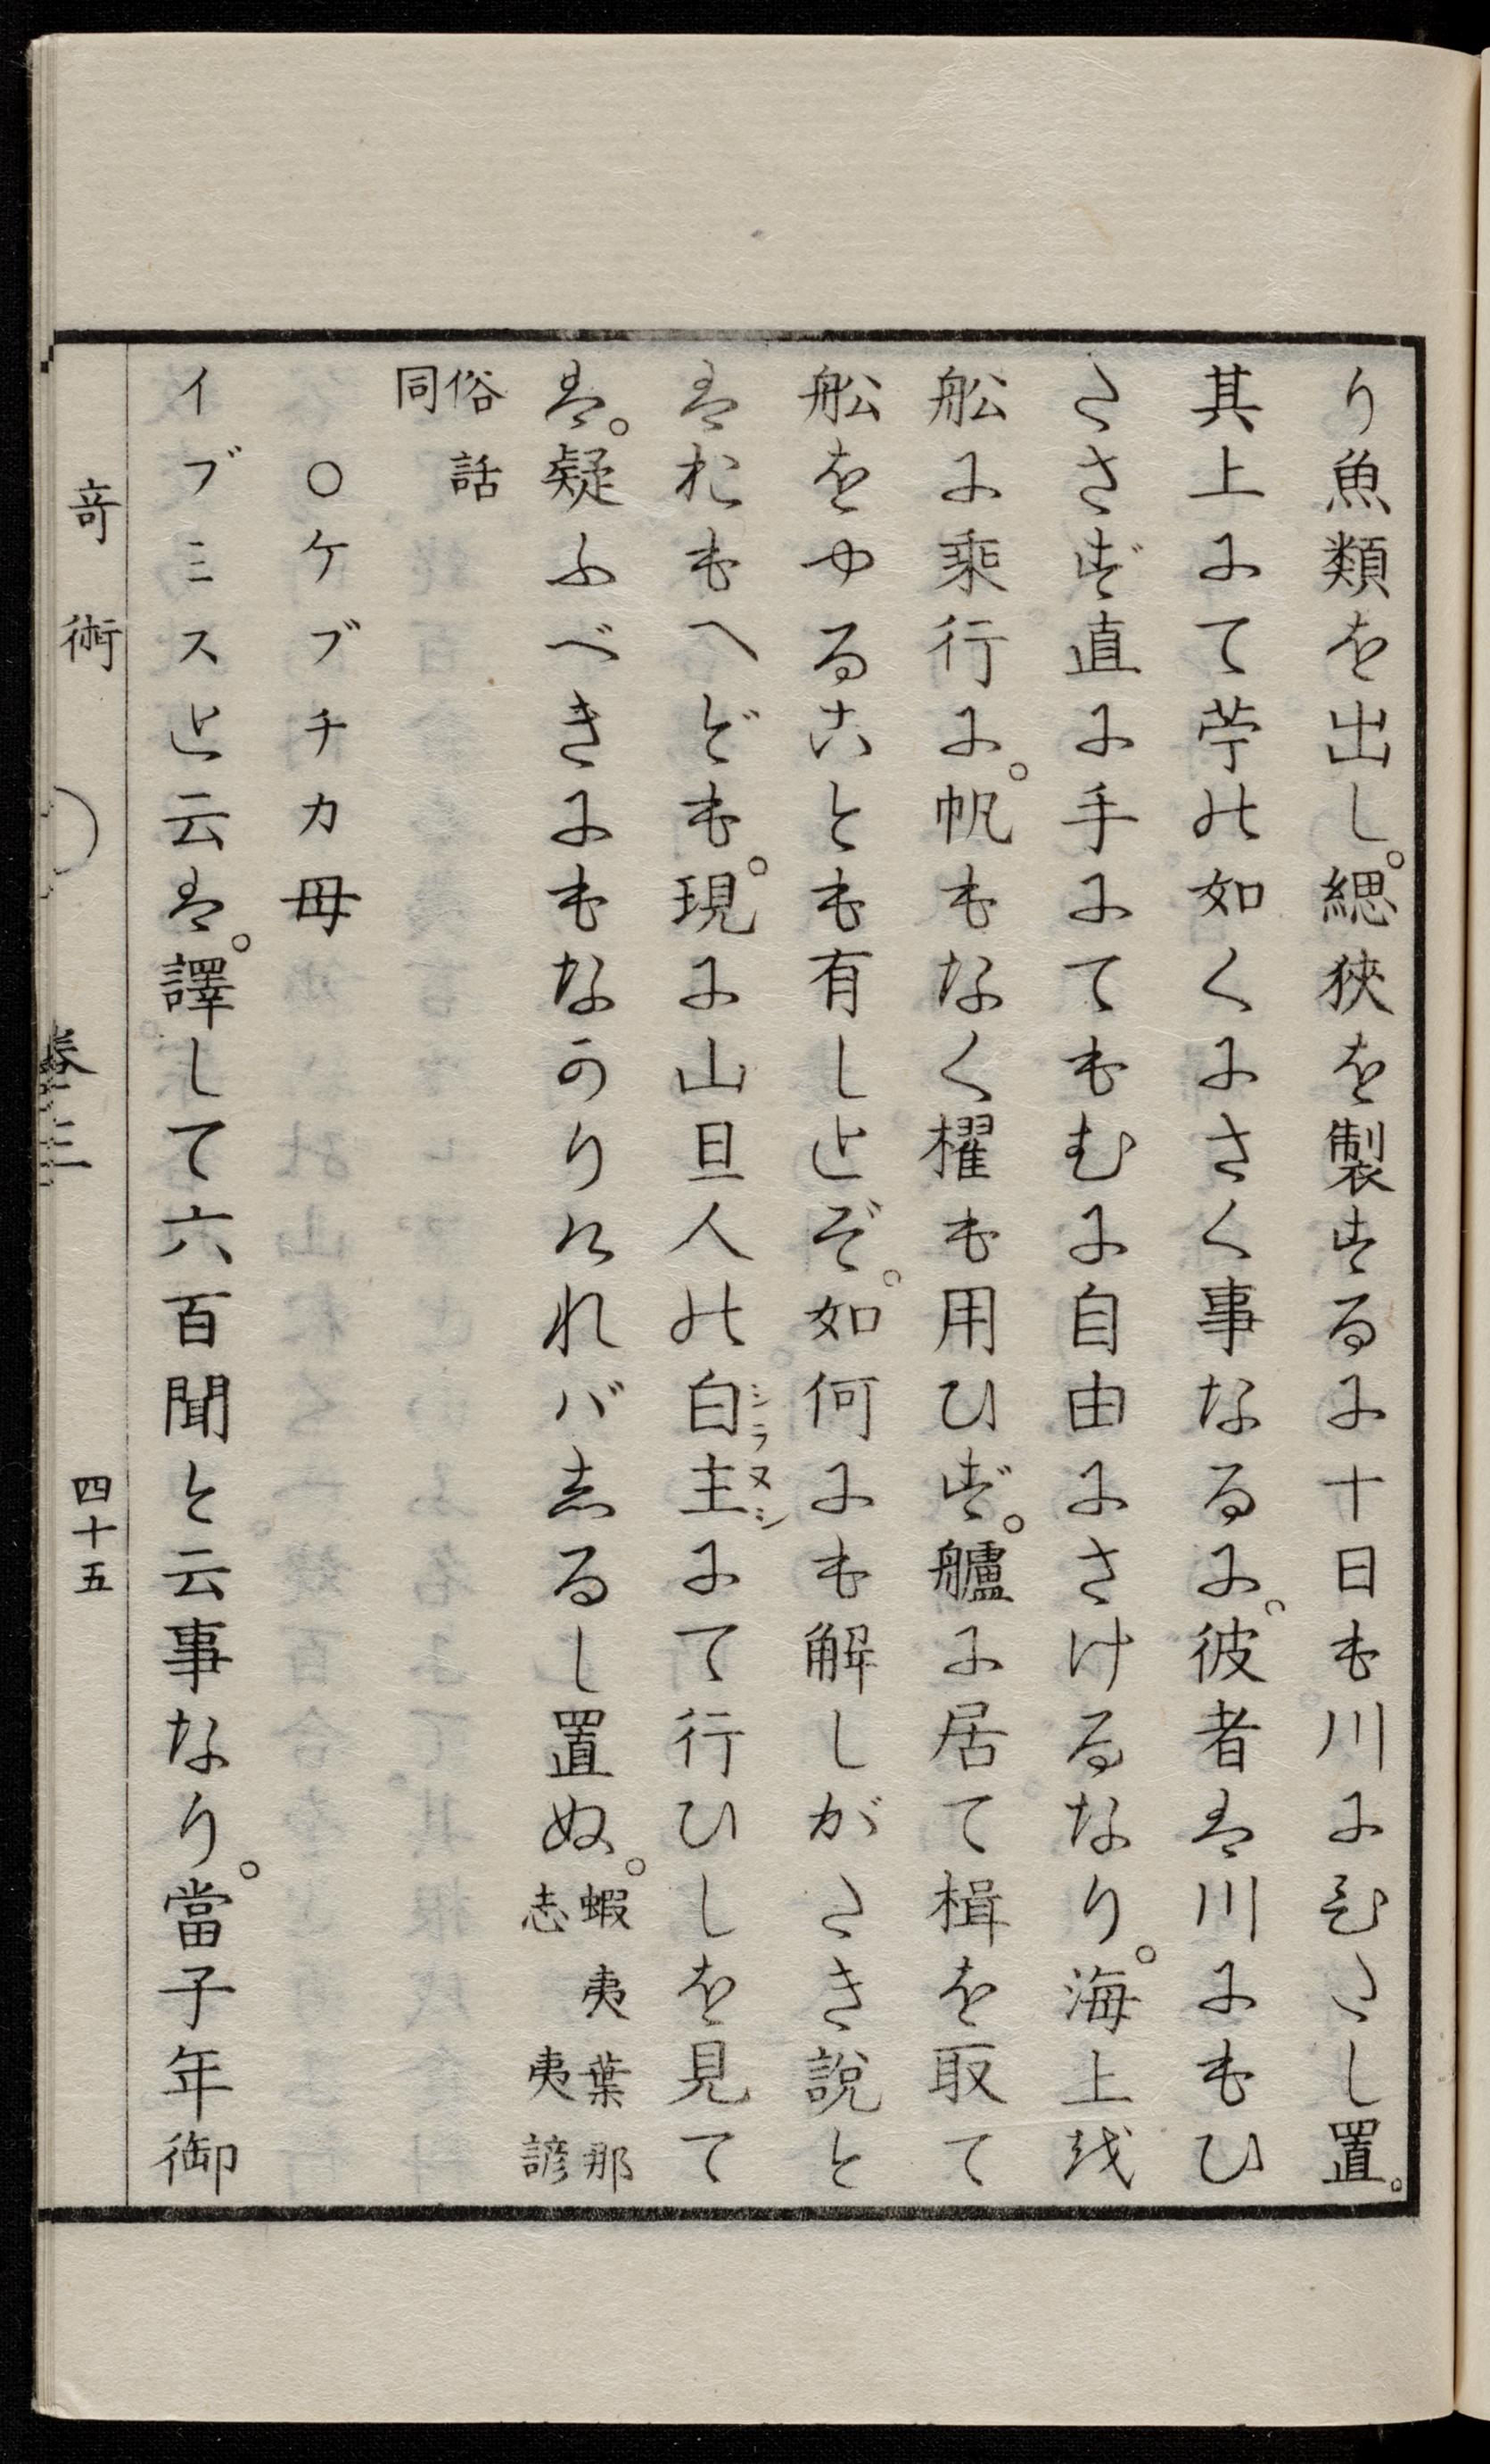 り魚類を出し。緦狹を製するに十日も川にひたし置。
其上にて苧の如くにさく事なるに。彼者は川にもひ
たさず直に手にてもむに自由にさけるなり。海上或
舩に乘行に。帆もなく櫂も用ひず。艫に居て楫を取て
舩をやることもありしとぞ。如何にも解しがたき説と
はおもへども。現に山旦人の白主にて行ひしを見て
は。疑ふべきにもなかりければしるし置ぬ。蝦夷葉那志夷諺
俗話同
○ケブチカ毋
イブミスと云は。譯して六百聞と云事なり。當子年御
竒術 卷三 四十五
シラヌシ